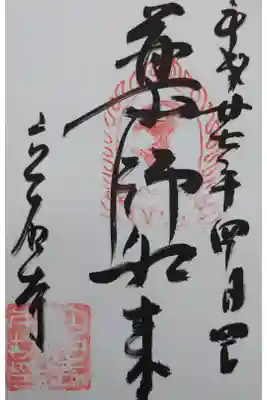 平成廿七年四月四日
薬師如来
立石寺